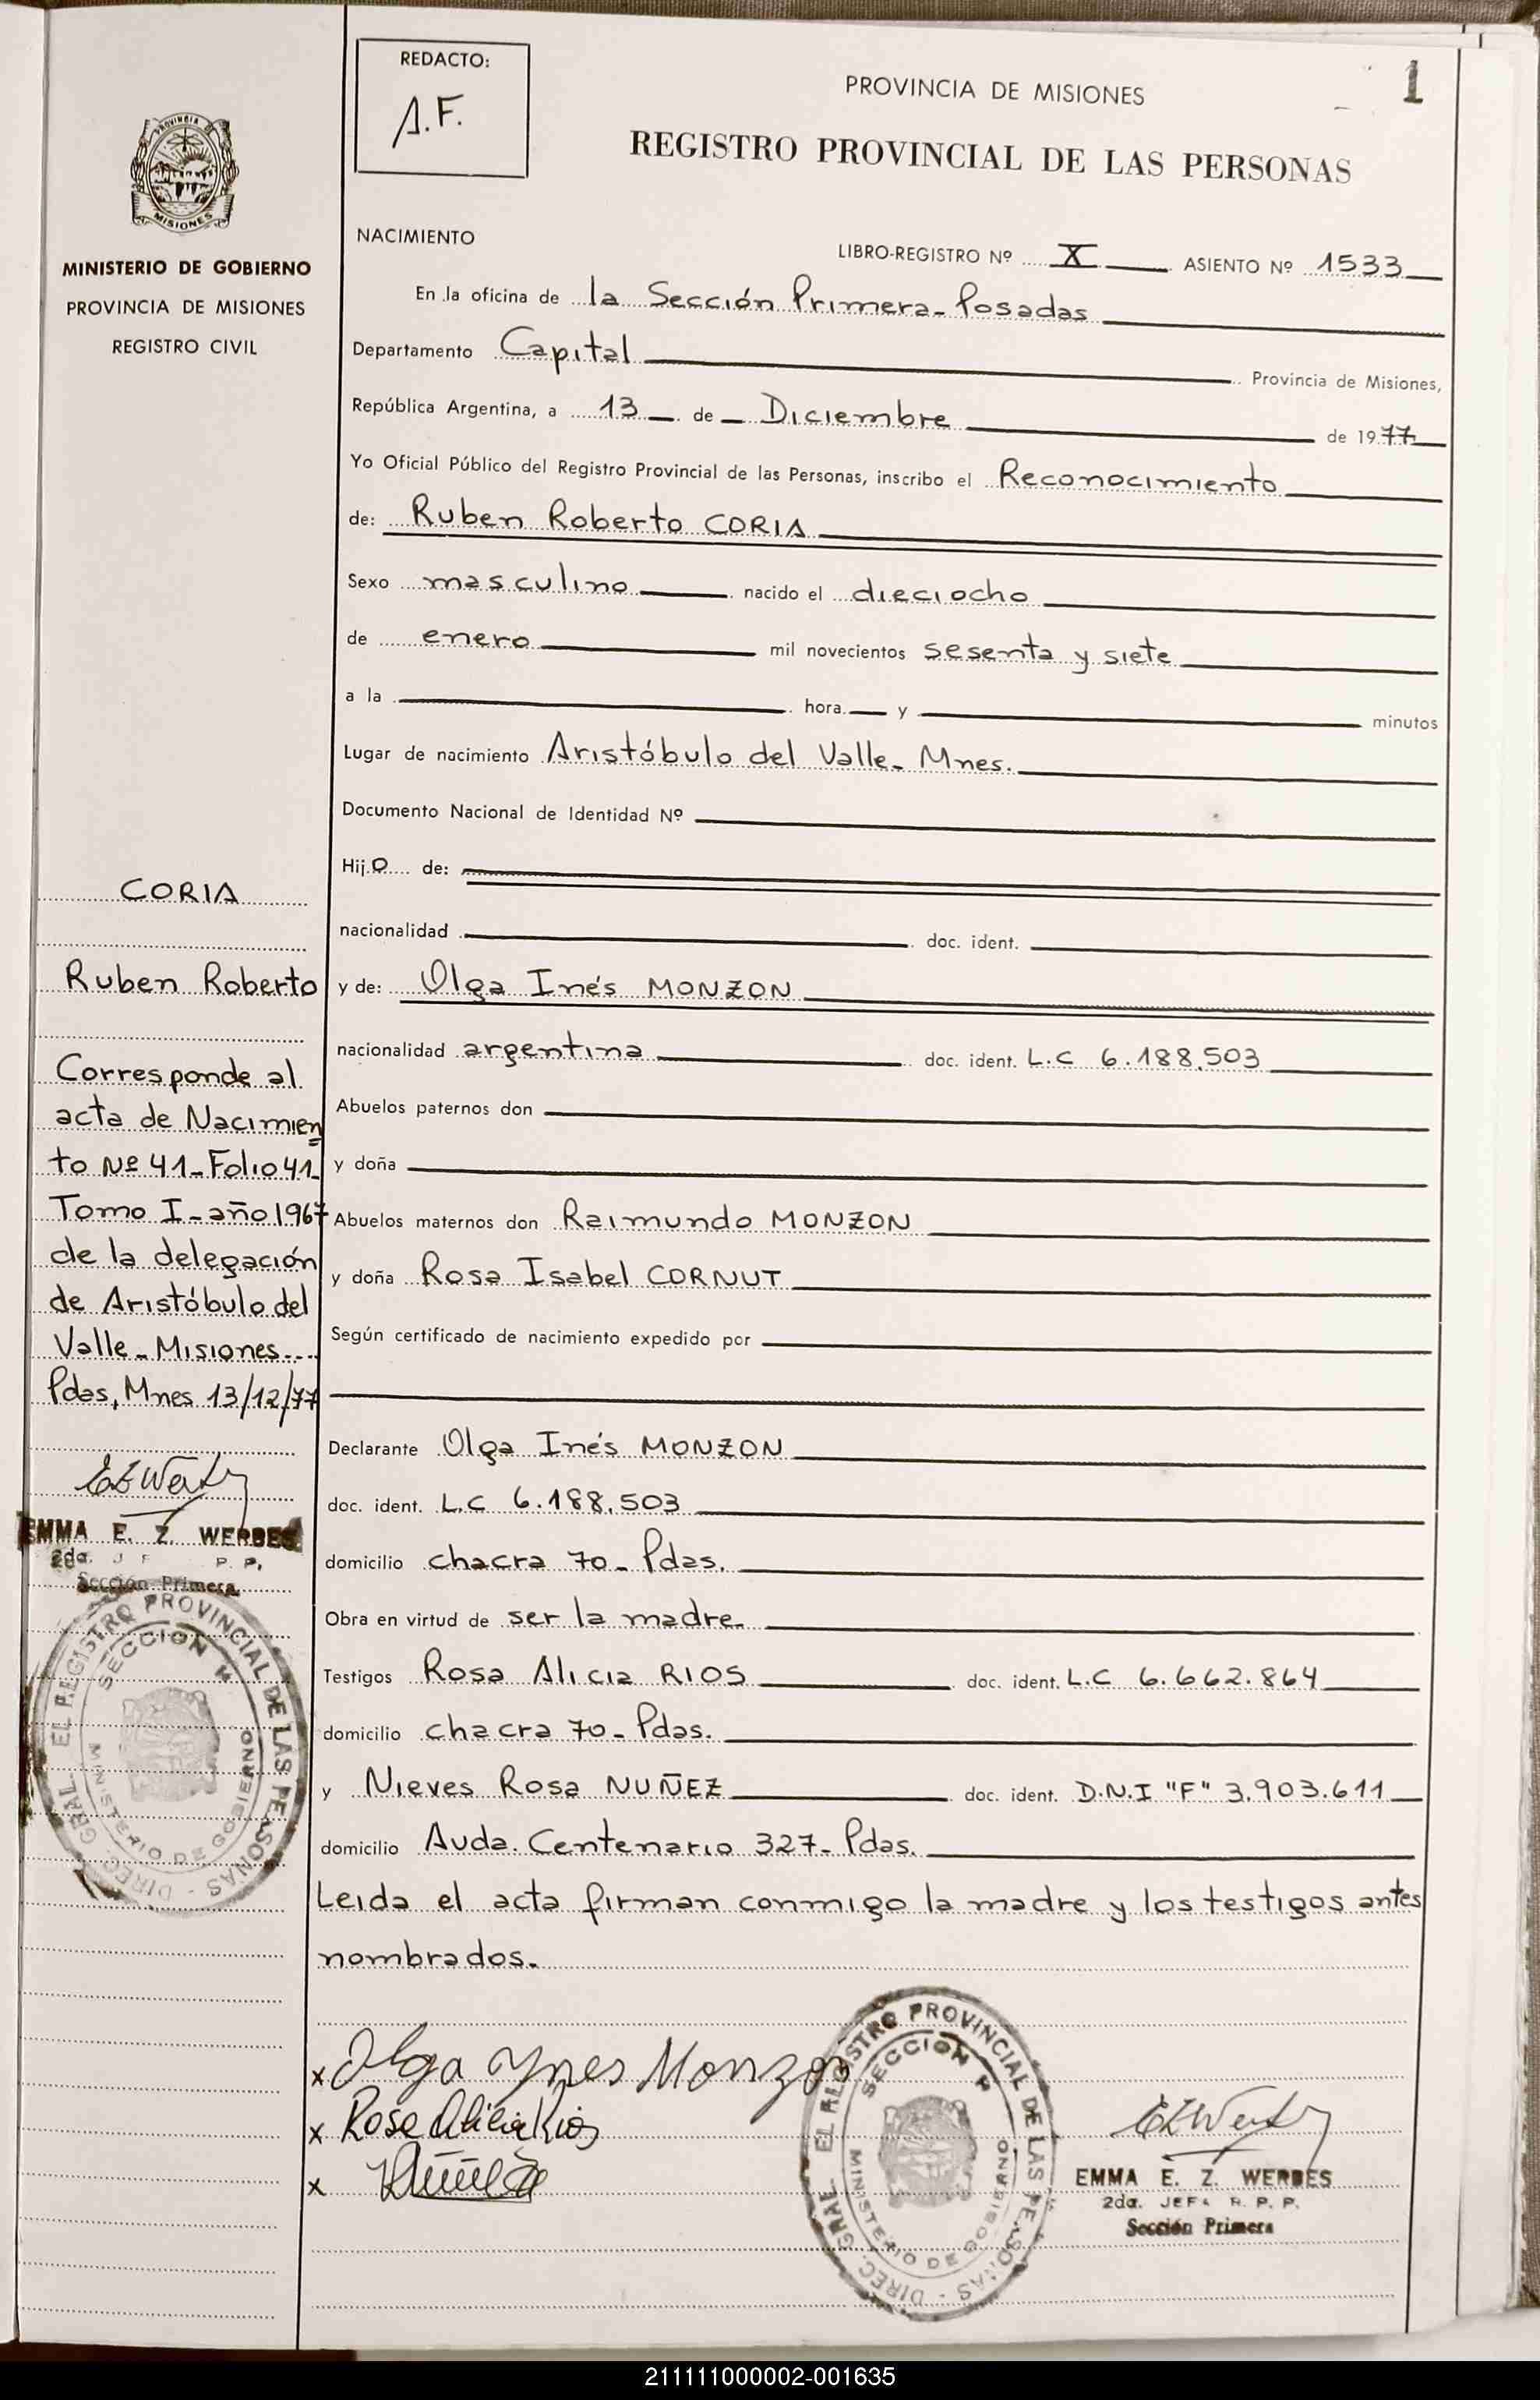 REDACTO:
A.F.
PROVINCIA DE MISIONES
1
REGISTRO PROVINCIAL DE LAS PERSONAS
PROVINCIA DE
MISIONES
MINISTERIO DE GOBIERNO
PROVINCIA DE MISIONES
REGISTRO CIVIL
NACIMIENTO
LIBRO-REGISTRO Nº X ASIENTO Nº 1533
En la oficina de la Sección Primera - Posadas
Departamento Capital Provincia de Misiones,
República Argentina, a 13 de Diciembre de 1977
Yo Oficial Público del Registro Provincial de las Personas, inscribo el Reconocimiento
de: Ruben Roberto CORIA
Sexo masculino nacido el dieciocho
de enero mil novecientos sesenta y siete
a la hora y minutos
Lugar de nacimiento Aristóbulo del Valle - Mnes.
Documento Nacional de Identidad Nº
Hijo de:
nacionalidad doc. ident.
y de: Olga Inés MONZON
nacionalidad argentina doc. ident. L.C 6.188.503
Abuelos paternos don
y doña
Abuelos maternos don Raimundo MONZON
y doña Rosa Isabel CORNUT
Según certificado de nacimiento expedido por
Declarante Olga Inés MONZON
doc. ident. L.C 6.188.503
domicilio chacra 70 - Pdas.
Obra en virtud de ser la madre.
Testigos Rosa Alicia RIOS doc. ident. L.C 6.662.864
domicilio chacra 70 - Pdas.
y Nieves Rosa NUÑEZ doc. ident. D.N.I "F" 3.903.611
domicilio Avda. Centenario 327 - Pdas.
Leida el acta firman conmigo la madre y los testigos antes
nombrados.
CORIA
Ruben Roberto
Corresponde al
acta de Nacimien
to Nº 41 - Folio 41 -
Tomo I - año 1967
de la delegación
de Aristóbulo del
Valle - Misiones
Pdas, Mnes 13/12/77
EMMA E. Z. WERBES
2da. J F P. P.
Sección Primera
DIREC. GRAL. EL REGISTRO PROVINCIAL DE LAS PERSONAS
SECCION
MINISTERIO DE GOBIERNO
x Olga Ynes Monzon
x Rosa Alicia Rios
x
DIREC. GRAL. EL REGISTRO PROVINCIAL DE LAS PERSONAS
SECCION
MINISTERIO DE GOBIERNO
EMMA E. Z. WERBES
2da. JEFA R. P. P.
Sección Primera
211111000002-001635